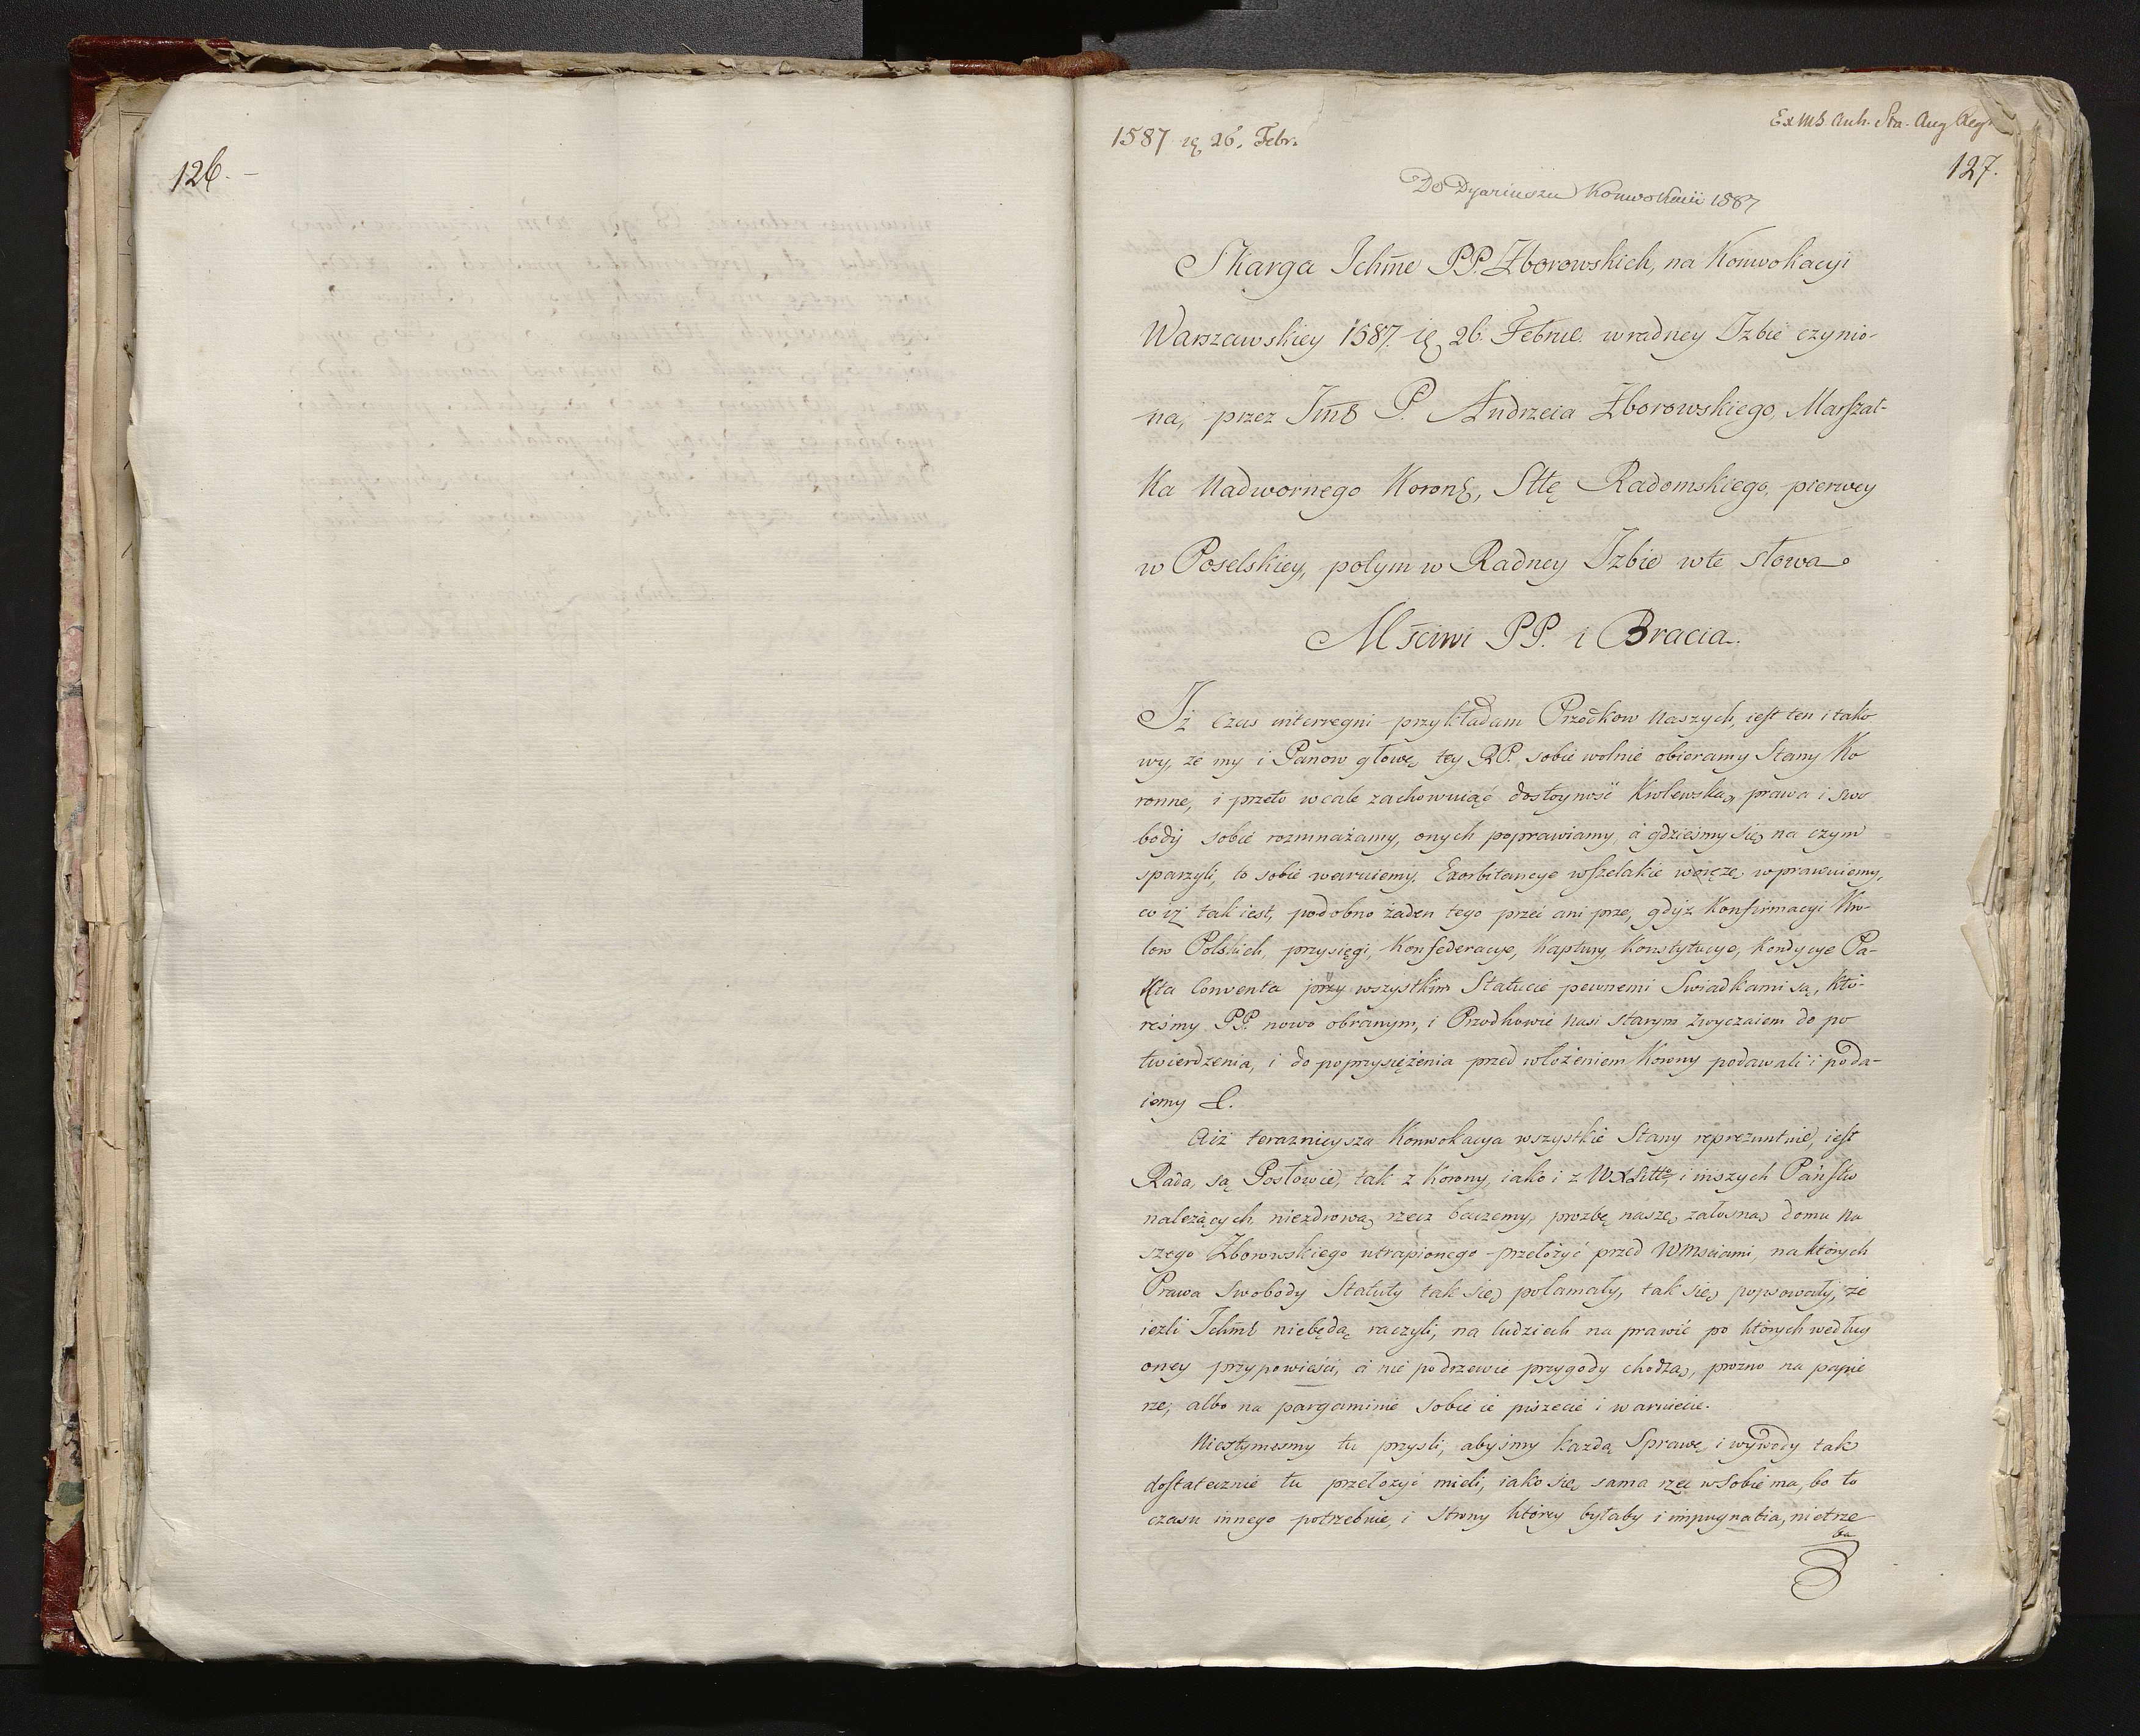 126.
Ex MS Arch. Sta. Aug Reg.
1587 26. Febr.
127.
Do Dyariuszu Konwokacii 1587
Skarga Ichm̃c PP. Zborowskich, na Konwokacyi
Warszawskiey 1587. 26. Februe. w radney Izbie czynio-
na, przez Jm̃ć P. Andrzeia Zborowskiego, Marszał-
ka Nadwornego Koronẽ, Sttę Radomskiego, pierwey
w Poselskiey, potym w Radney Izbie w te słowa
Mściwi PP. i Bracia.
Iż czas interregni przykładam Przodkow Naszych, iest ten i tako
wy, że my i Panow głowę tey RP. sobie wolnie obieramy Stany Ko
ronne, i przeto wcale zachowuiąc dostoyność Krolewską, prawa i swo
body sobie rozmnażamy, onych poprawiamy, á gdzieśmy się na czym
sparzyli, to sobie waruiemy. Exorbitancye wszelakie wprawuiemy,
co iż tak iest, podobno żaden tego przeć ani prze, gdyż Konfirmacyi Kro-
low Polskich, przysięgi, Konfederacye, Kaptury, Konstytucye, Kondycye Pa-
kta Conventa przy wszystkim Statucie pewnemi Swiadkami są, któ-
reśmy PP. nowo obranym, i Przodkowie Nasi starym zwyczaiem do po
twierdzenia, i do poprzysiężenia przed włożeniem Korony podawali i poda-
iemy
A iż teraznieysza Konwokacya wszystkie Stany reprezentuie, iest
Rada, są Posłowie, tak z Korony, iako i z WXLitto, i inszych Państw
należących, niezdrową rzecz baczemy, prozbę naszę załosną domu na
szego Zborowskiego utrapionego przełożyć przed WMściami, na których
Prawa Swobody Statuty tak się połamały, tak się popsowały, że
iezli Ichm̃ć niebędą raczyli, na ludziech na prawić po których według
oney przypowieści, á nie po drzewie przygody chodzą, prozno na papie
rze, albo na pargaminie sobie ie piszecie i waruiecie.
Nieztymesmy tu przysli, abyśmy każdą Sprawę, i wywody tak
dostatecznie tu przełozyć mieli, iako się sama rzec w sobie ma, bo to
czasu innego potrzebuie, i strony którey byłaby i impugnatia, nietrze
ba